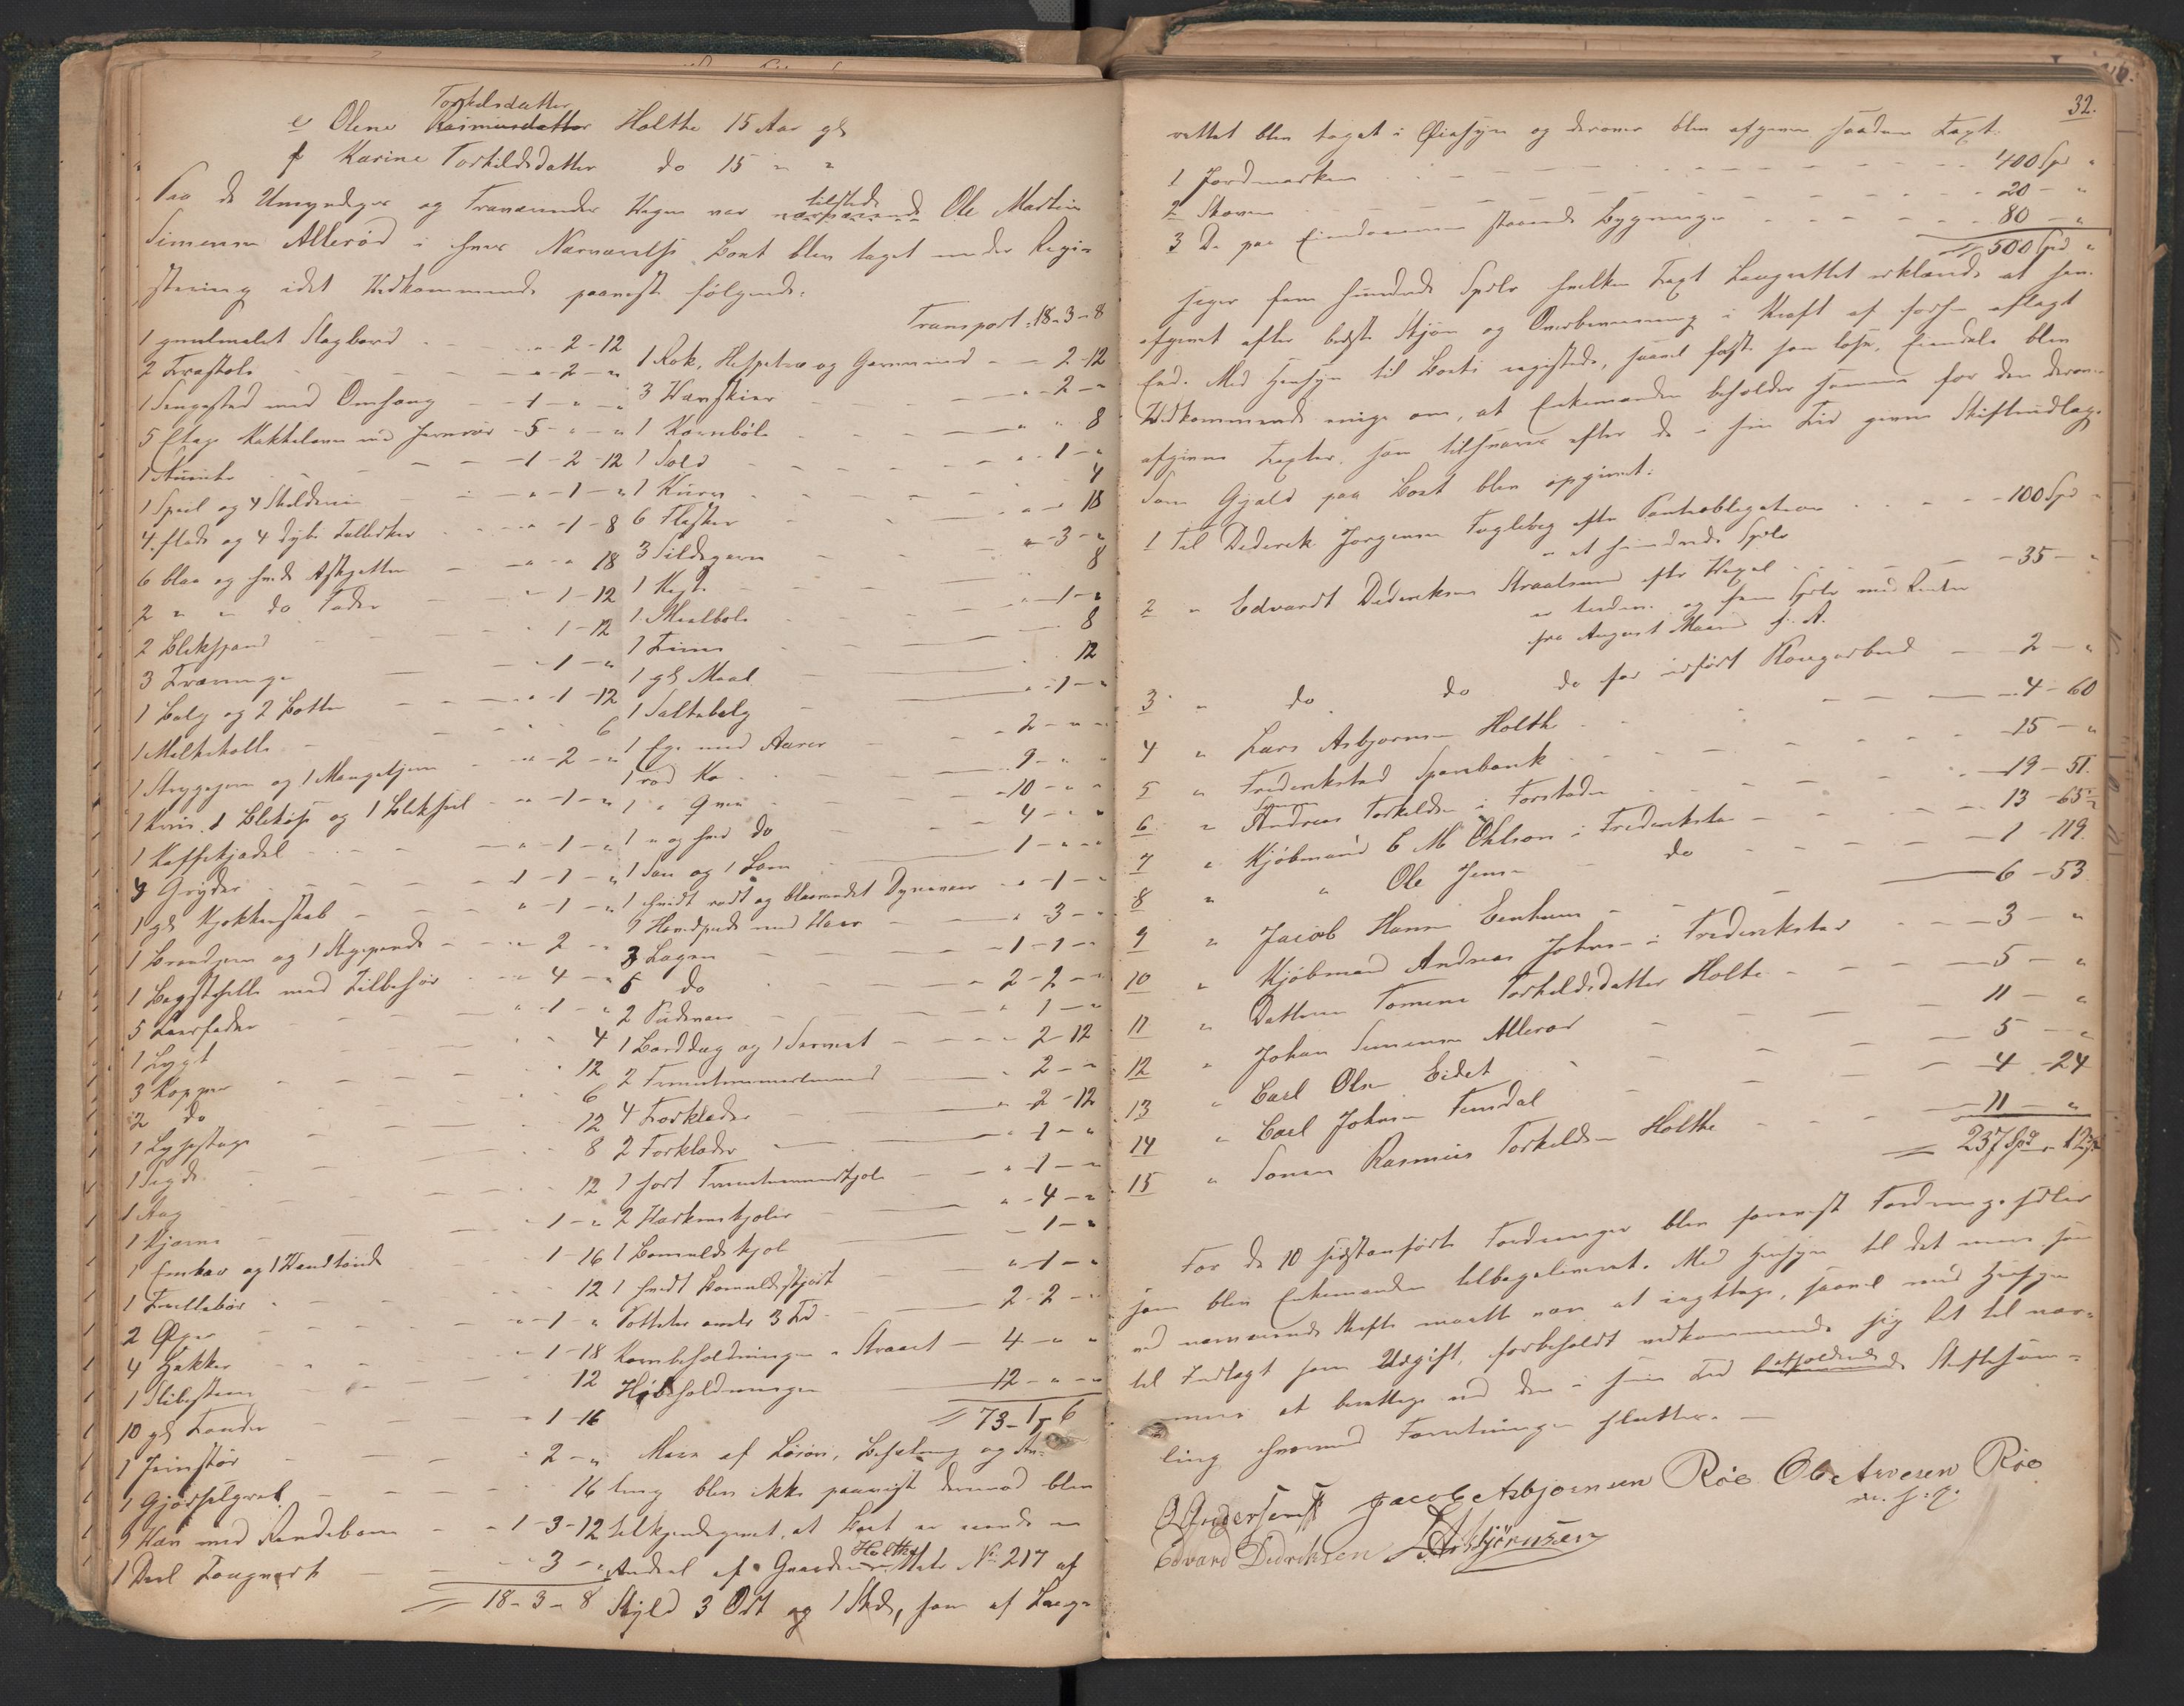 Torkildsdatter
e Olene Rasmusdatter Holthe 15 Aar gl
f Karine Torkildsdatter do 15 " "
Paa de Umyndiges og Fraværendes Vegne var nærværende tilstede Ole Martin
Simensen Allerød i hvis Nærværelse Boet blev taget under Regi-
strering idet Vedkommende paaviste følgende:
1 gulmalet Slagbord " - 2 - 12
2 Træstole " - 2 - "
1 Sengested med Omhang - 1 - " - "
5 Etages Kakkelovn med Jernrør - 5 - " - "
1 Stueuhr - 1 - 2 - 12
1 Speil og 4 Skilderier " - 1 - "
4 flade og 4 dybe Tallerkener " - 1 - 8
6 blaa og hvide Askjetter " - " 18
2 " " do Fade " - 1 - 12
2 Blikspand 1 - 12
3 Træringe - 1 - "
1 Balg og 2 Bøtter " - 1 - 12
1 Melkekolle 6
1 Strygejern og 1 Mangletjern " - 2 - "
1 Kruus, 1 Blikøse og 1 Bliksiel " - 1 - "
1 Kaffekjedel " - 1 - "
4 Gryder - 1 - 1 - "
1 gl Kjøkkenskab " - 1 - "
1 Brandjern og 1 Stegepande " - 2 - "
1 Bagstehelle med Tilbehør " - 4 - "
5 Leerfade " - 1 - "
1 Lygt 4
3 Kopper 12
2 do 6
1 Lysestage 12
1 Sigde 8
1 Aag 12
1 Kjærne - 1 - "
1 Emkar og 1 Vandtønde 1 - 16
1 Trillebør 12
2 Øxer " - 1 - "
4 Hakker " - 1 - 18
1 Slibesteen 12
10 gl Tønder " 1 - 16
1 Jernstør " 2 - "
1 Gjødselgreb 16
1 Væv med Rendebom " 1 - 3 - 12
1 Deel Tougverk - 3 - "
= 18 - 3 - 8
Transport: 18 - 3 - 8
1 Rok, Hespetræ og Garnvinde - 2 - 12
3 Vævskier " - 2 - "
1 Kornbøle " " 8
1 Sold " - 1 - "
1 Kurv 4
6 Flasker " - " 18
3 Sildegarn " - 3 - "
1 8
1 Meelbøle " - 1 - "
1 Tine 8
1 gl Maal 12
1 Saltebalg " - 1 - "
1 Ege med Aarer - 2 - " - "
1 rød Ko 9 - " "
1 " Qvie - 10 - " "
1 " og hvid do 4 - " "
1 Sau og 1 Lam 1 - " "
1 hvidt rødt og blaarandet Dynevaar " - 1 - "
2 Hovedpuder med Vaar " 3 - "
3 Lagen - 1 - 1 - "
5 do " 2 - 2 - "
2 Pudevaar " 1 - "
1 Borddug og 1 Serviet - 2 - 12
2 " 2 - "
4 Forklæder " 2 - 12
2 Forklæder " - 1 - "
1 sort " - 1 - "
2 Værkenskjoler " - 4 - "
1 Bomuldskjol - 1 - "
1 hvidt Bomuldsskjørt " - 1 - "
Potteter omtr 3 Td 2 - 2 -
Kornbeholdningen i Straaet - 4 - " "
Høbeholdningen 12 - " - "
= 73 - 1 - 6
Mere af Løsøre, Besætning og An-
ting blev ikke paavist derimod blev
tilkjendegivet, at Boet er eiende en
Andeel af Gaarden Holthe Matr. No. 217 af
Skyld 3 Ort og 1 Sk, som af Laug-
32.
rettet blev taget i Øiesyn og derover blev afgiven saadan Taxt:
1 Jordmarken 400 Spd "
2 Skoven - 20 - "
3 De paa Eiendommen staaende Bygninger 80 - "
= 500 Spd "
siger fem hundrede Spdlr hvilken Taxt Laugrettet erklærede at have
afgivet efter bedste Skjøn og Overbeviisning i Kraft af forhen aflagt
Eed. Med Hensyn til Boets registrerede, saavel faste som løse, Eiendele blev
Vedkommende enige om, at Enkemanden beholder samme for den derover
afgivne Taxter, som tilsvares efter de i sin Tid givne Skifteudlæg.
Som Gjæld paa Boet blev opgivet:
1 Til Diderik Jørgensen Fuglevig efter Panteobligation - 100 Spd "
et hundrede Spdlr
2 " Edvardt Dideriksen Straalsund efter Vexel - 35 - "
er tredive og fem Spdlr med Renter
fra August Maaned f. A.
3 " do do do for udført Kougarbeid - 2 - "
4 " Lars Asbjørnsen Holth 4 - 60
5 " Frederikstad Sparebank - 15 - "
6 " Sønnen Andreas Torkildsen i Forstaden - 19 - 51
7 " Kjøbmand C M Ohlson i Frederikstad 13 - 65
8 " " Ole Jensen do - 1 - 119
9 " Jacob Hansen - 6 - 53
10 " Kjøbmand Andreas Johnsen i Frederikstad 3 - "
11 " Datteren Tomine Torkildsdatter Holte - 5 - "
12 " Johan Simensen Allerød 11 - "
13 " Carl Olsen Eidet - 5 - "
14 " Carl Johnsen - 4 - 24
15 " Sønnen Rasmus Torkildsen Holthe - 11 - "
= 237 Spd 12
For de 10 sidstanførte Fordringer blev foreviist Fordringssedler
som blev Enkemanden tilbageleveret. Med Hensyn til det mere som
ved nærværende Skifte maatte være at iagttage, saavel med Hensyn
til Indtægt som Udgift, forbeholdt vedkommende sig Ret til nær-
mere at berette ved den i sin Tid afholdende Skiftesam-
ling hvormed Forretningen sluttes. —
O Andersen Jacob Asbjørnsen Röe Ole Arvesen Röe
m. f. P.
Edvard Dedriksen L Asbjörnsen